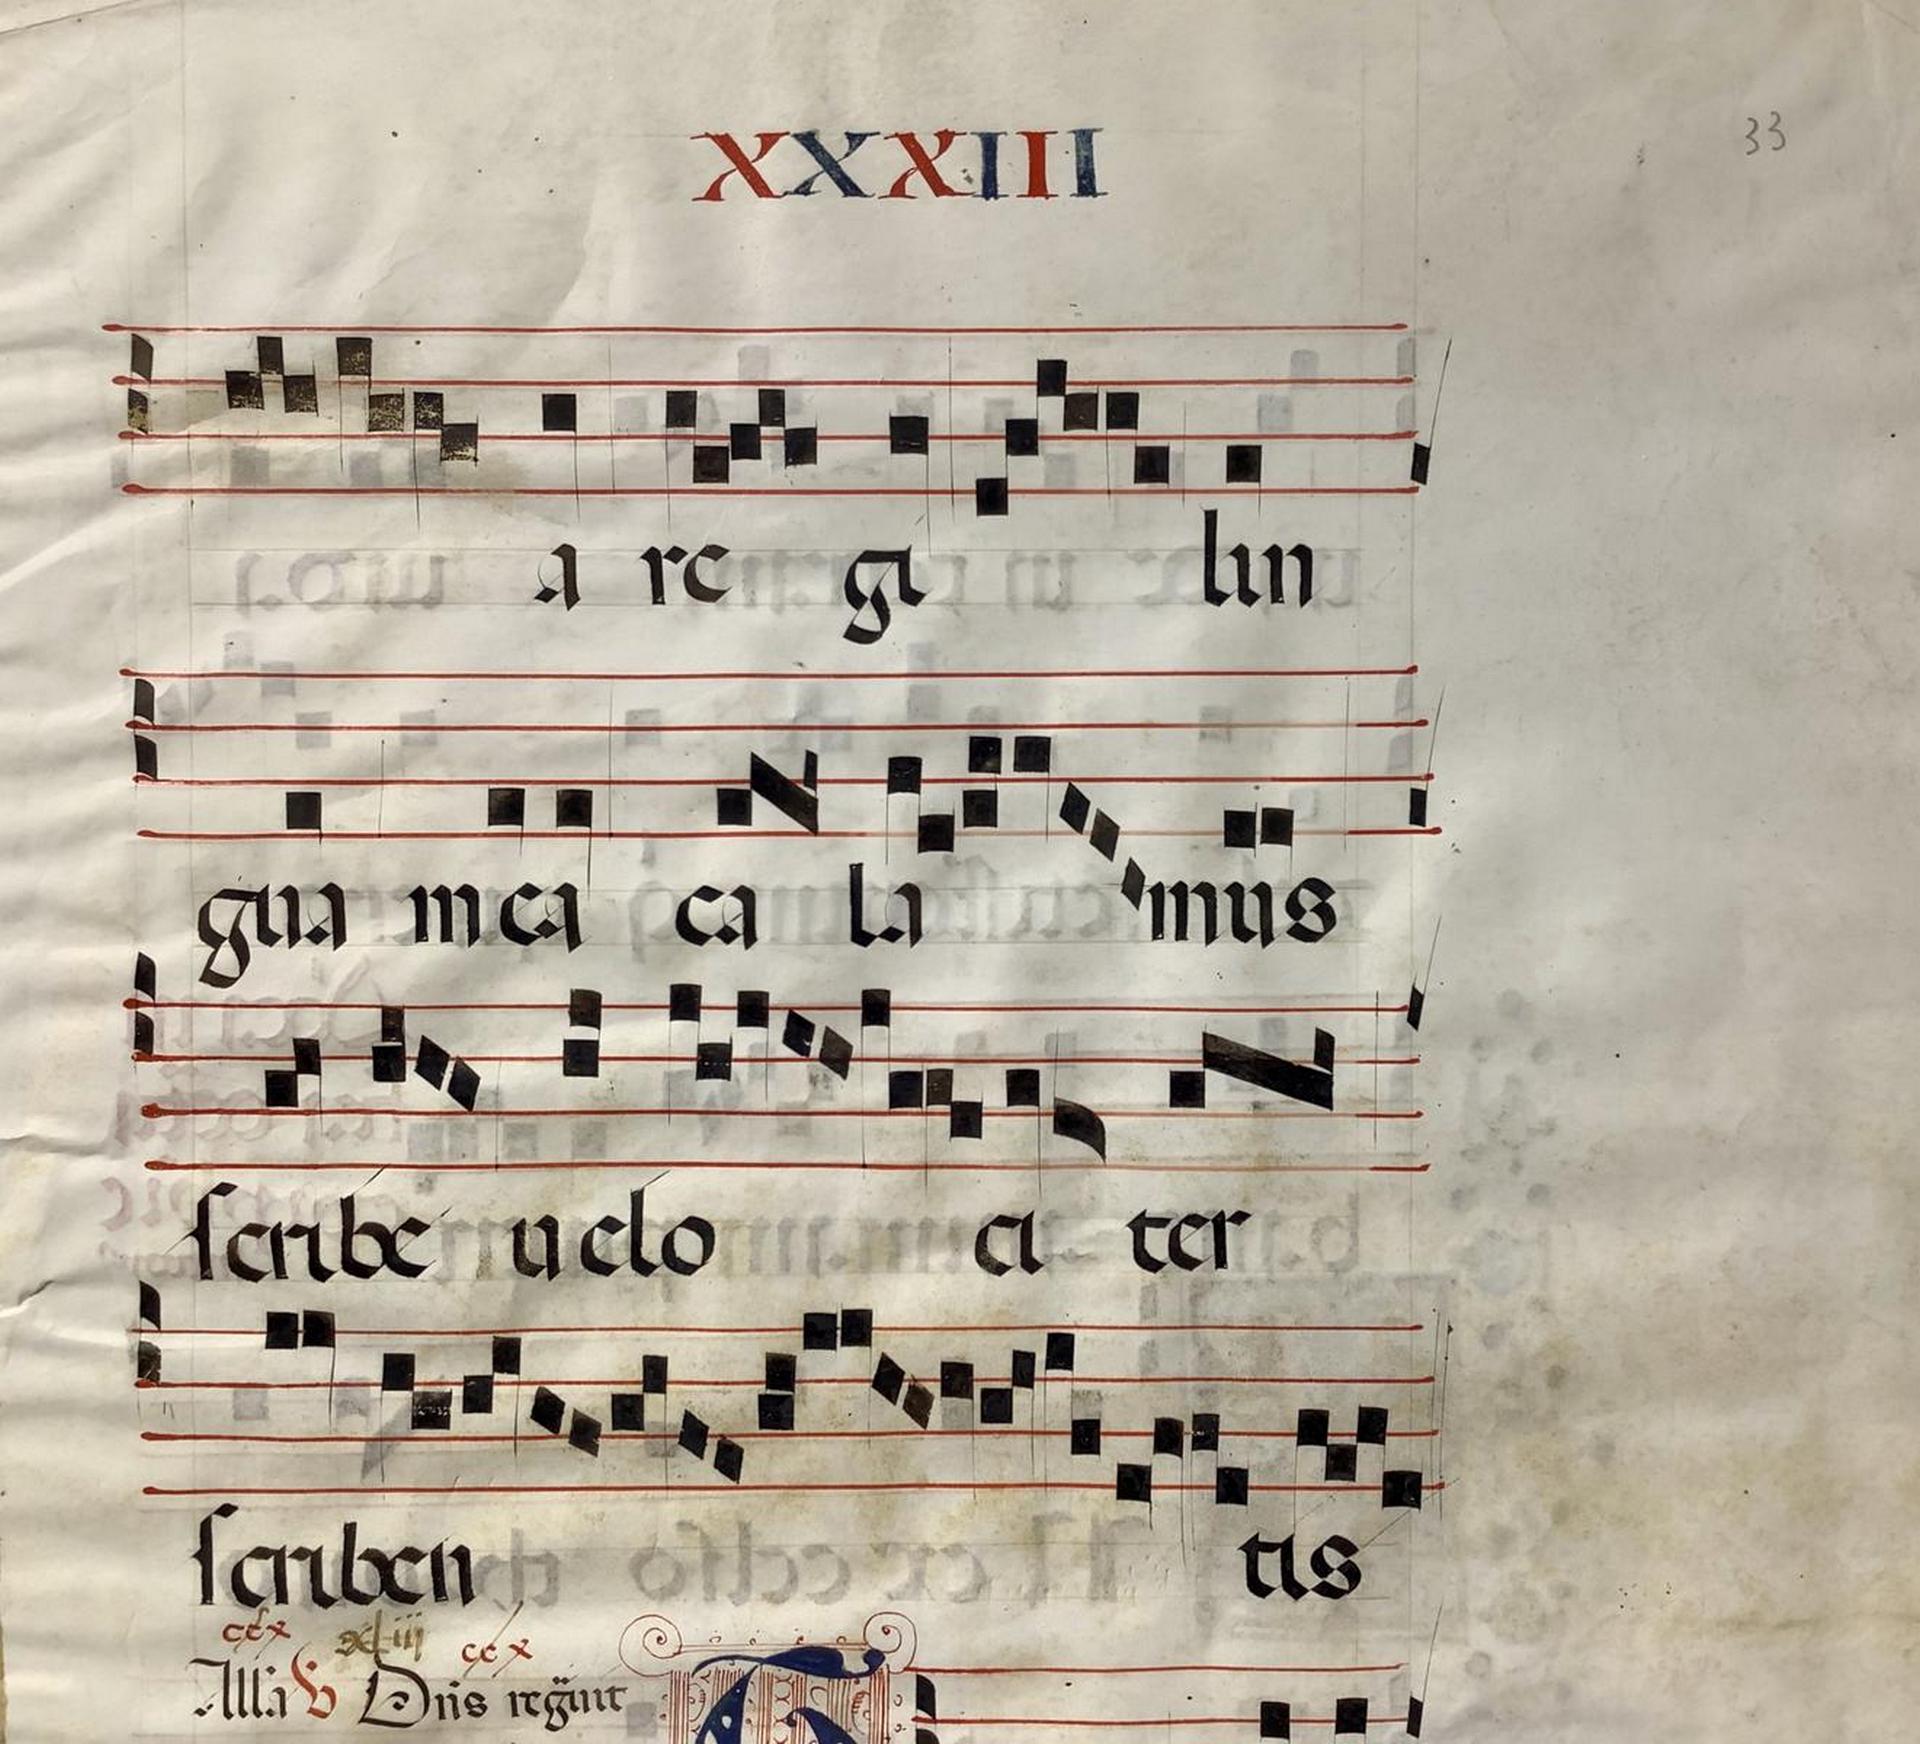 XXXIII
33
a re gi lin
gua mea ca la mus
scribe uelo ci ter
scriben tis
ccx xliii ccx
Alla V Dns regnut